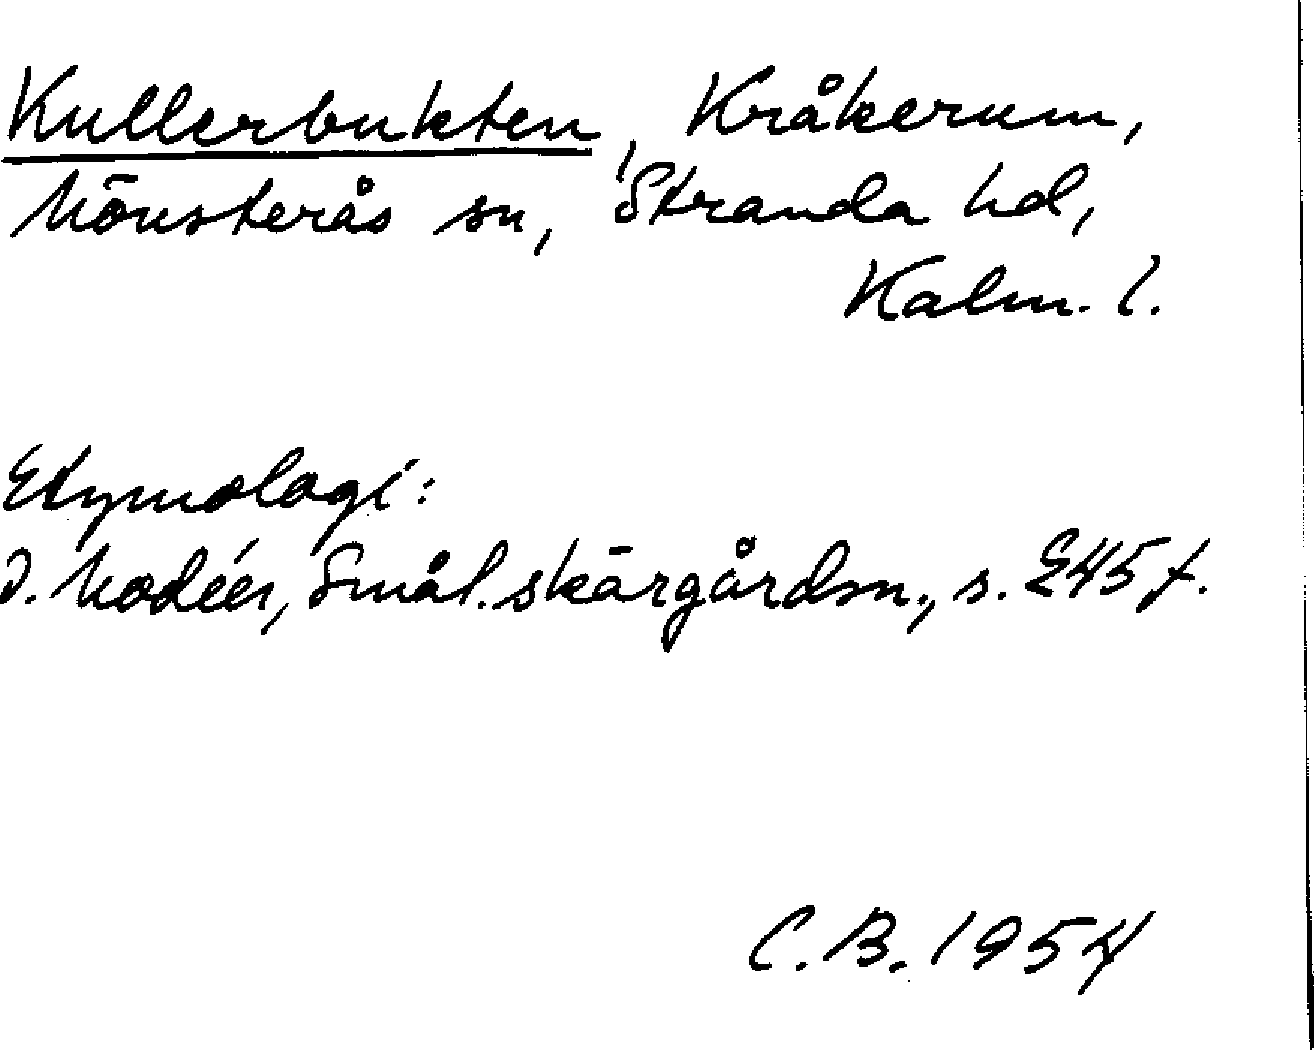 Kullerbukten, Kråkerum,
Mönsterås sn, Stranda hd,
Kalm. l.
Etymologi:
I. Modéer, Smål. skärgårdsn., s. 245 f.
C. B. 1954